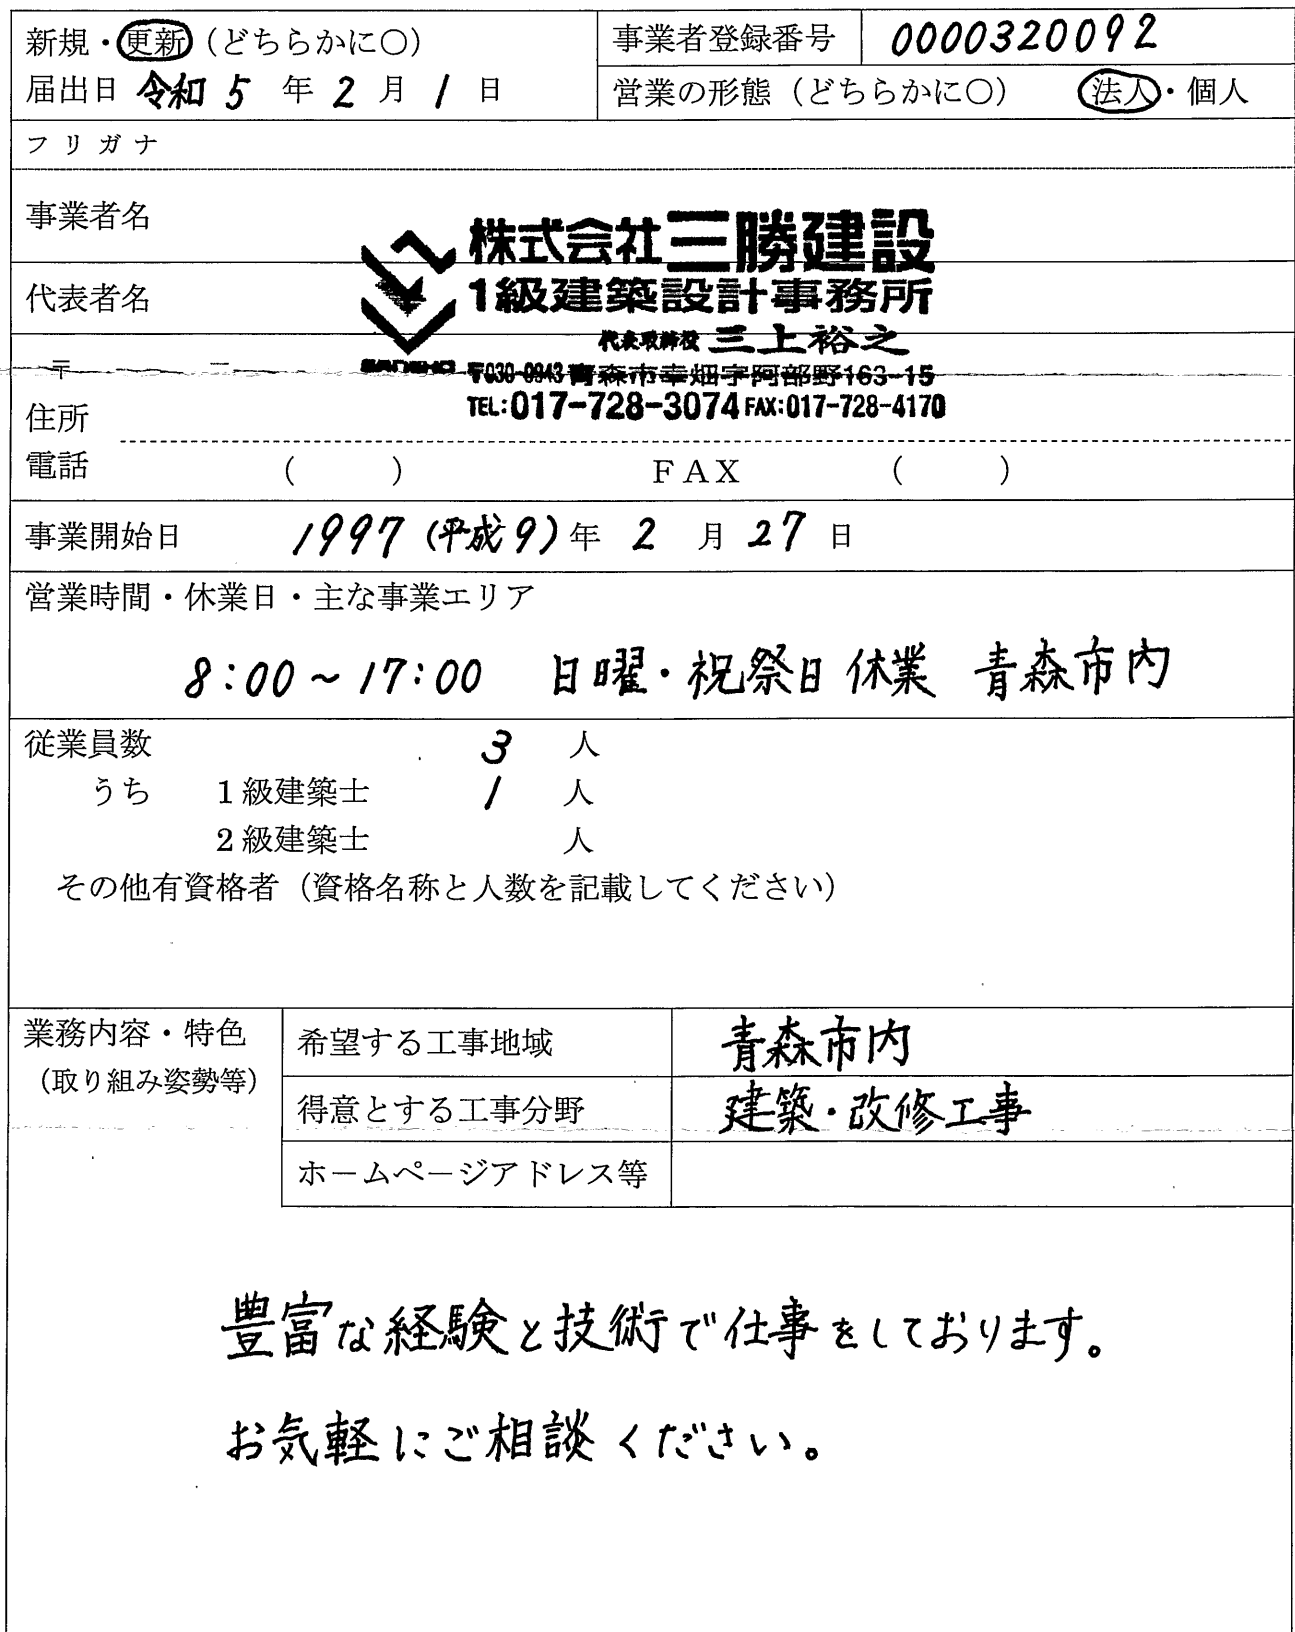 新規・更新(どちらかに○)
事業者登録番号 0000320092
届出日 令和 5 年 2 月 1 日
営業の形態(どちらかに○) 法人・個人
フリガナ
事業者名
株式会社三勝建設
1級建築設計事務所
代表者名
代表取締役 三上裕之
〒 −
〒030-0943 青森市幸畑字阿部野163-15
TEL:017-728-3074 FAX:017-728-4170
住所
電話 ( ) FAX ( )
事業開始日 1997(平成9)年 2 月 27 日
営業時間・休業日・主な事業エリア
8:00~17:00 日曜・祝祭日休業 青森市内
従業員数 3 人
うち 1級建築士 1 人
2級建築士 人
その他有資格者(資格名称と人数を記載してください)
業務内容・特色
(取り組み姿勢等)
希望する工事地域 青森市内
得意とする工事分野 建築・改修工事
ホームページアドレス等
豊富な経験と技術で仕事をしております。
お気軽にご相談ください。